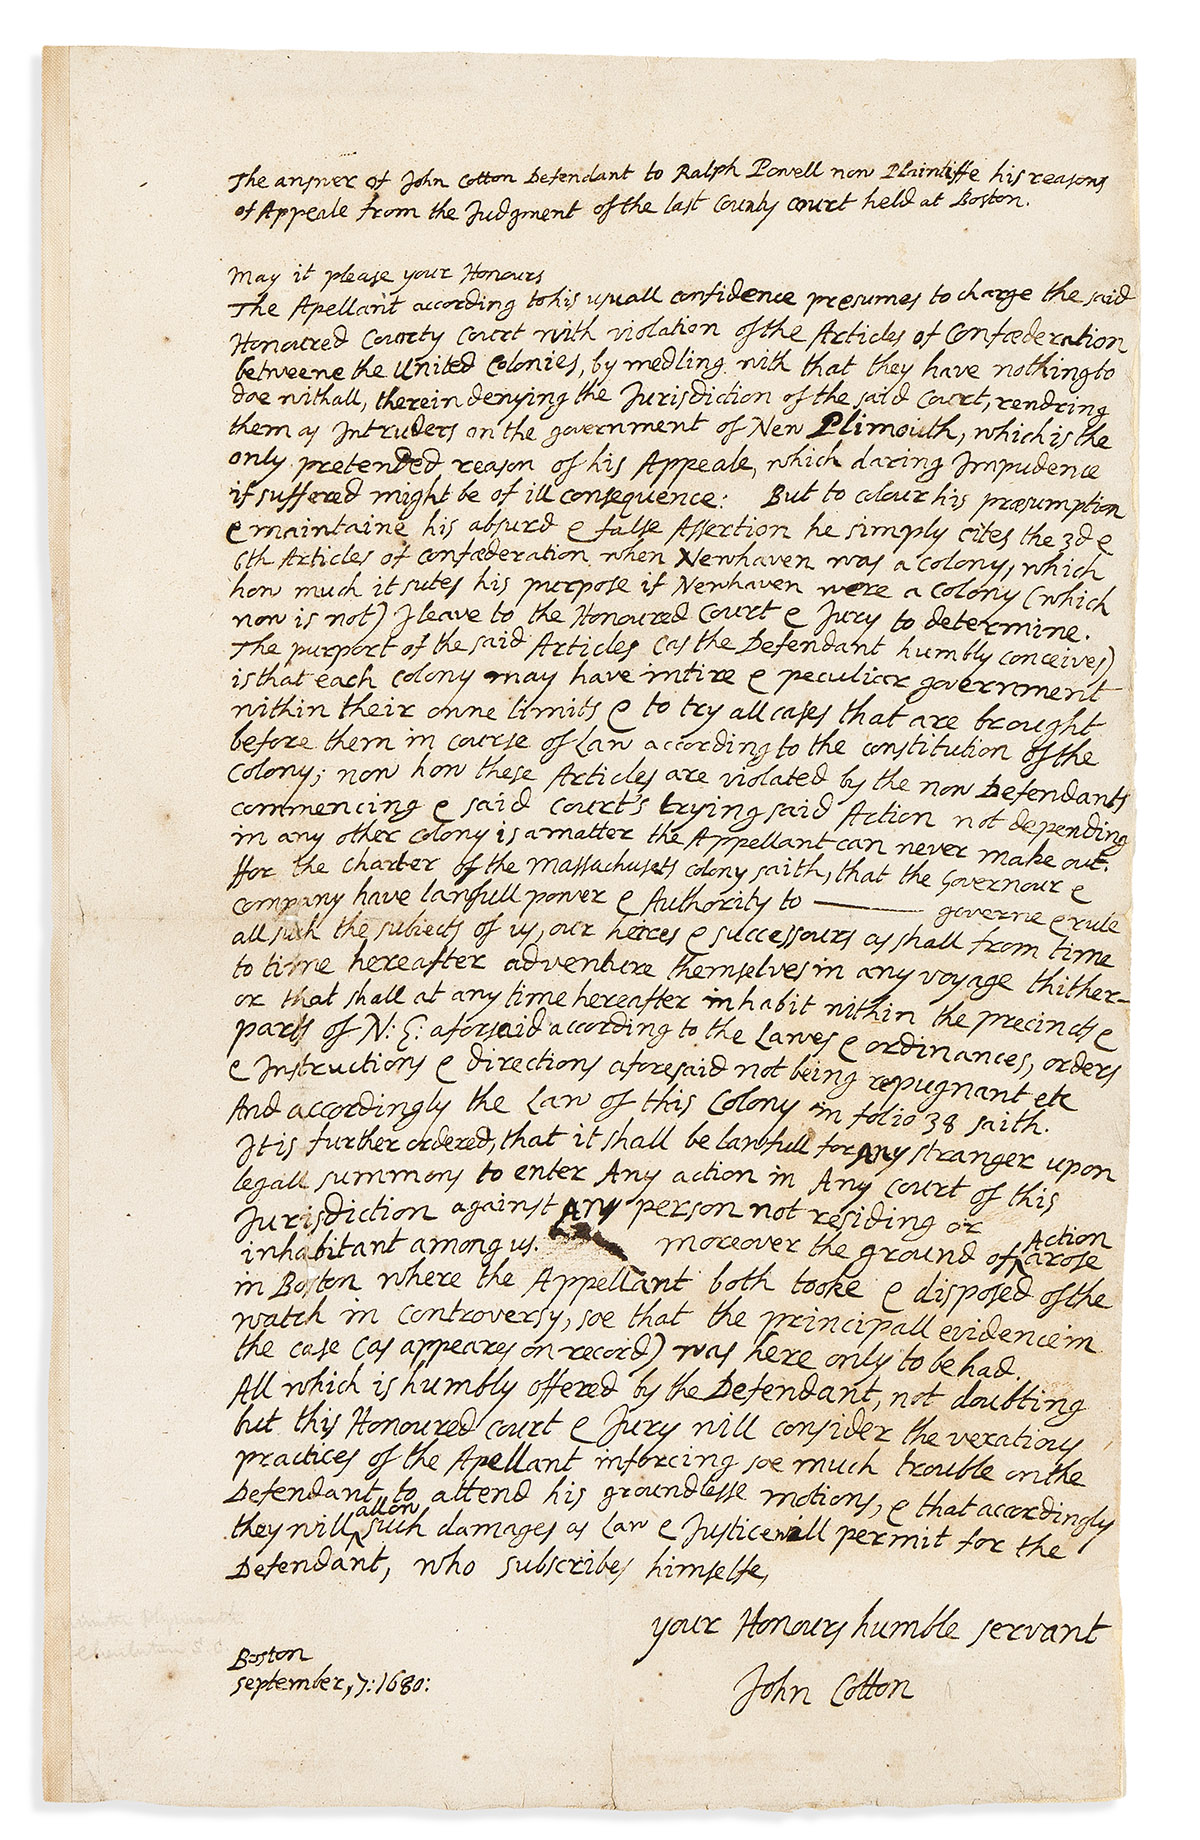 The answer of John Cotton Defendant to Ralph Powell now Plaintiffe his reasons
of Appeale from the Judgment of the last County court held at Boston.
May it please your Honours
The Apellant according to his usuall confidence presumes to charge the said
Honoured County Court with violation of the Articles of Confœderation
betweene the United Colonies, by medling with that they have nothing to
doe withall, therein denying the Jurisdiction of the said Court, rendring
them as Intruders on the government of New Plimouth, which is the
only pretended reason of his Appeale, which daring Impudence
if suffered might be of ill consequence: But to colour his præsumption
& maintaine his absurd & false Assertion he simply cites the 3d &
6th Articles of confœderation when Newhaven was a Colony, which
how much it sutes his purpose if Newhaven were a Colony (which
now is not) I leave to the Honoured Court & Jury to determine.
The purport of the said Articles (as the Defendant humbly conceives)
is that each colony may have intire & peculiar government
within their owne limits & to try all cases that are brought
before them in course of Law according to the constitution of the
Colony; now how these Articles are violated by the now Defendants
commencing & said Court's trying said Action not depending
in any other colony is a matter the Appellant can never make out.
ffor the Charter of the Massachusets colony saith, that the Governour &
company have lawfull power & Authority to ——— governe & rule
all such the subjects of us, our heires & successours as shall from time
to time hereafter adventure themselves in any voyage thither-
or that shall at any time hereafter inhabit within the precincts &
parts of N: E: aforsaid according to the Lawes & ordinances, orders
& Instructions & directions aforesaid not being repugnant etc
And accordingly the Law of this Colony in folio 38 saith.
It is further ordered, that it shall be lawfull for Any stranger upon
legall summons to enter Any action in Any court of this
Jurisdiction against Any person not residing or
inhabitant among us. moreover the ground of Action arose
in Boston where the Appellant both tooke & disposed of the
watch in controversy, soe that the principall evidence in
the case (as appeares on record) was here only to be had.
All which is humbly offered by the Defendant, not doubting
but this Honoured court & Jury will consider the vexatious
practices of the Apellant inforcing soe much trouble on the
Defendant to attend his groundlesse motions, & that accordingly
they will allow such damages as Law & Justice will permit for the
Defendant, who subscribes himselfe,
your Honours humble servant
John Cotton
Boston
september, 7: 1680: